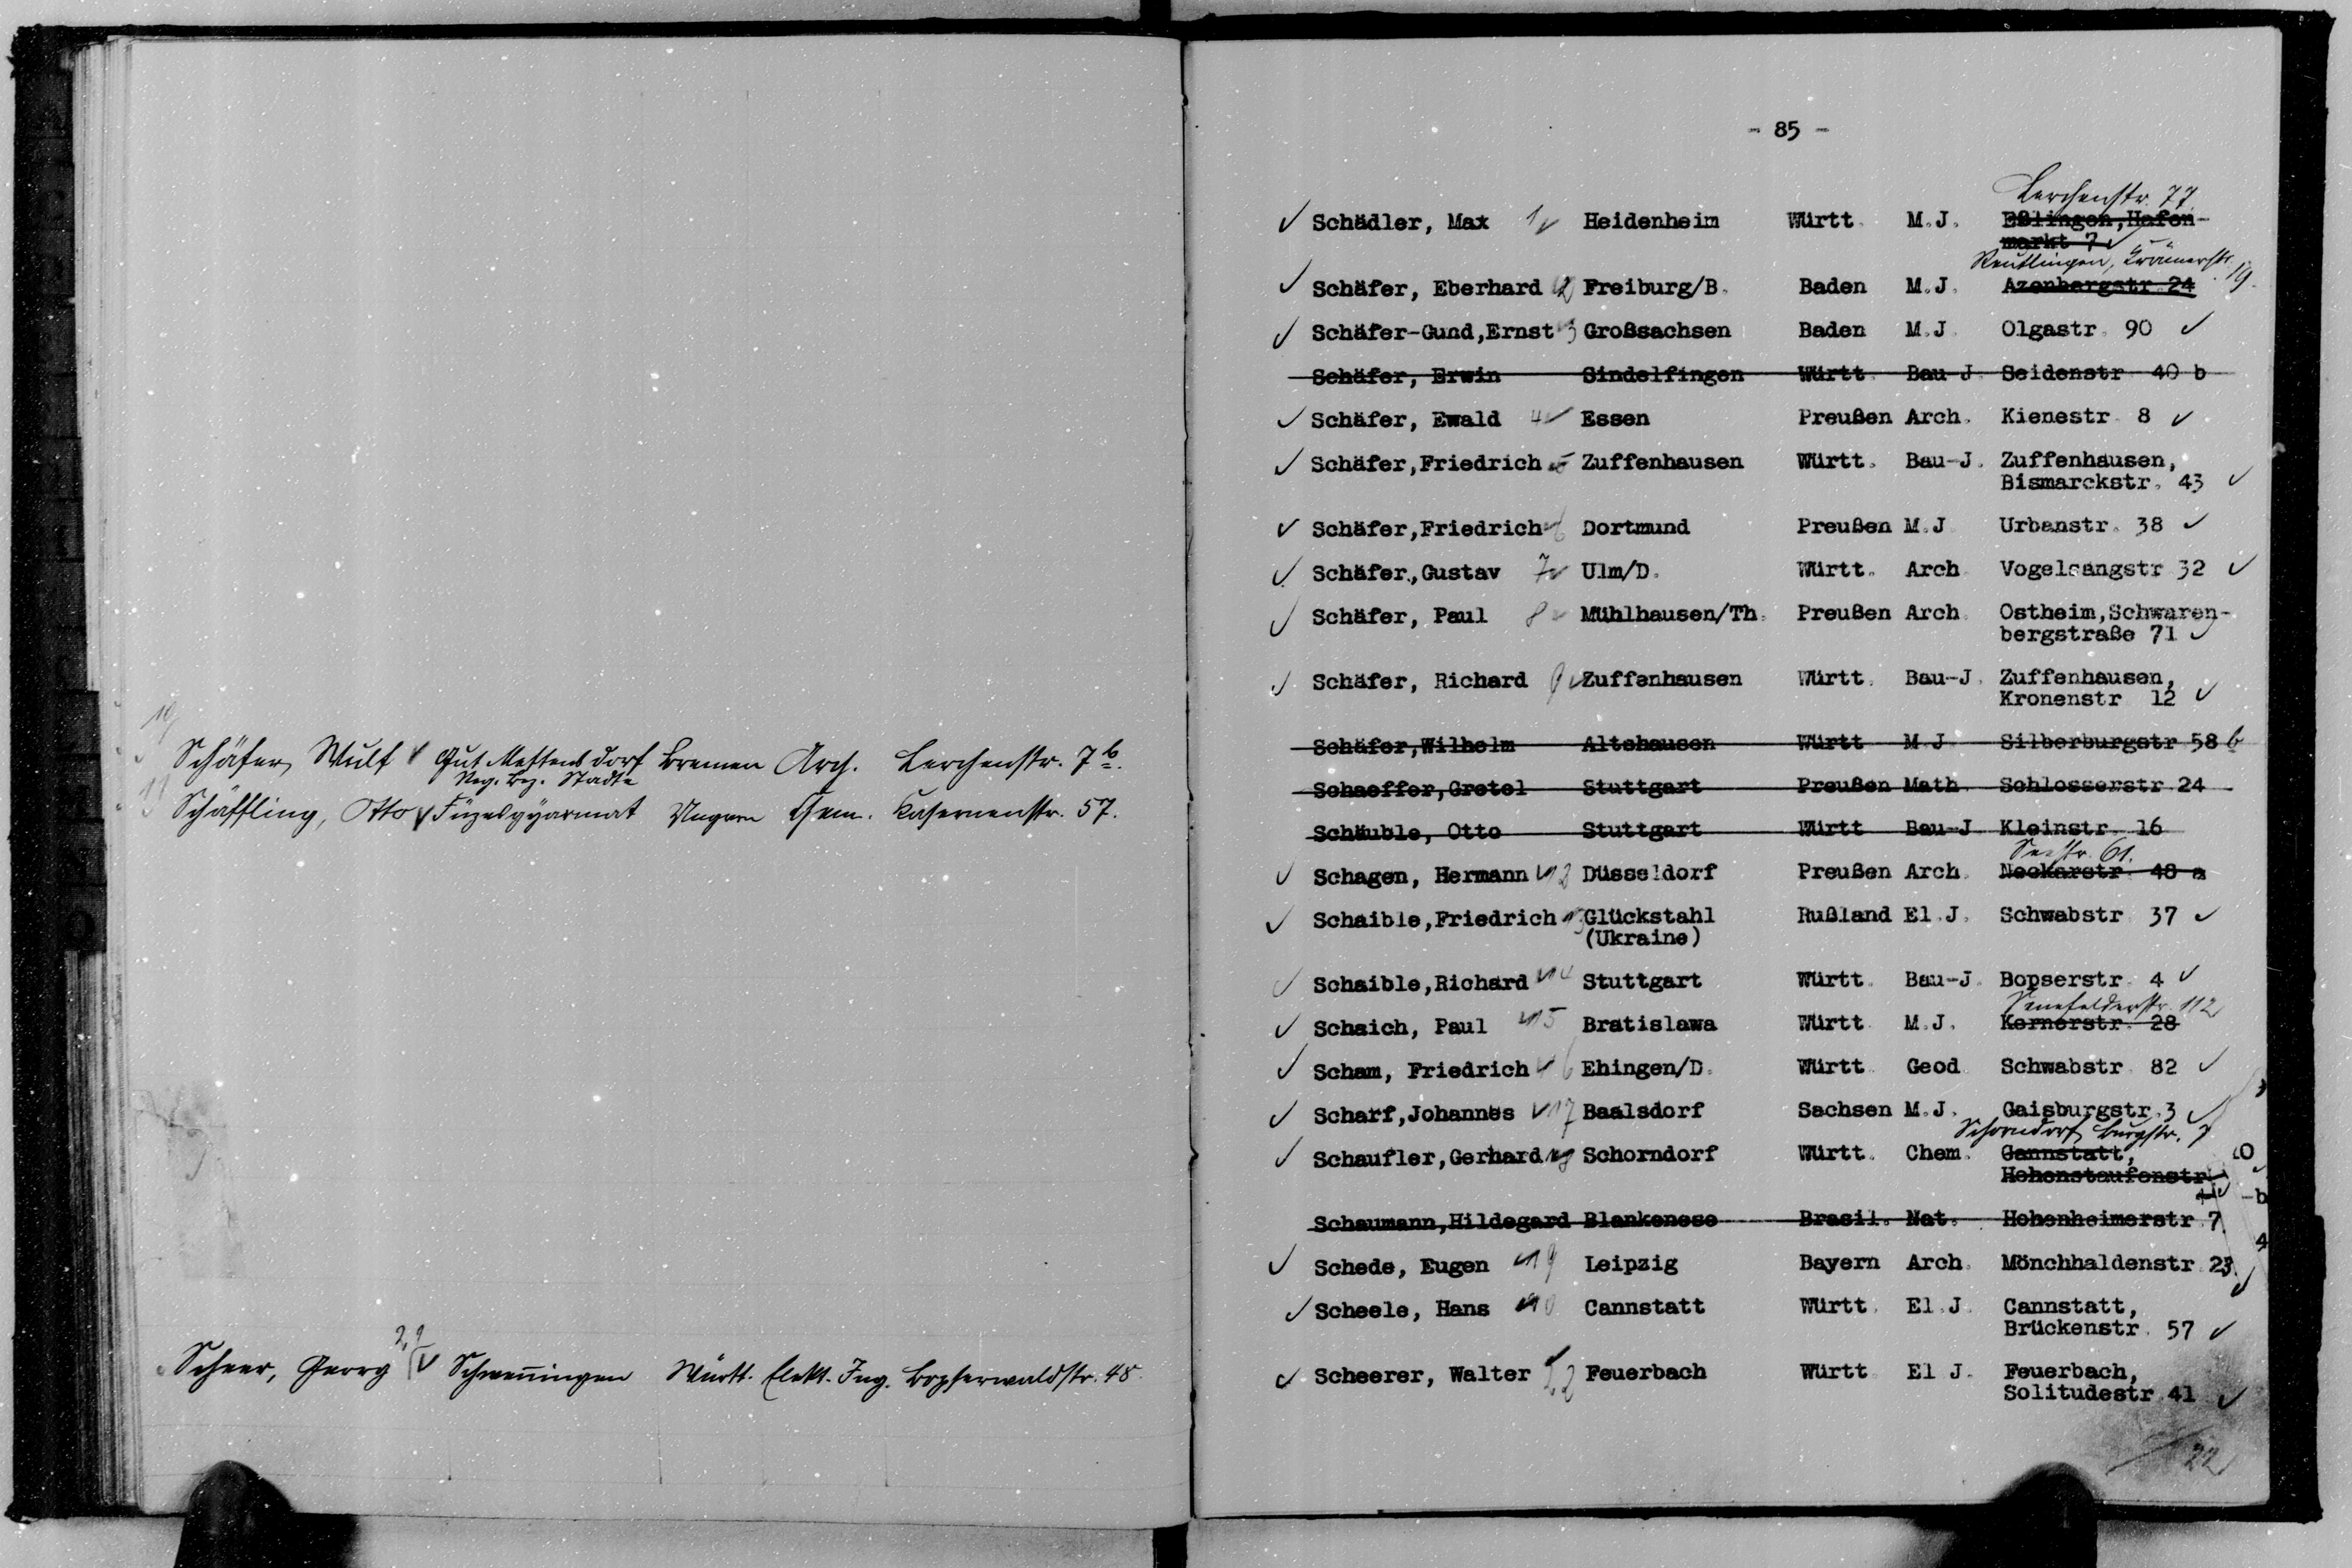 10
Schäfer, Wulf √ Gut Mettensdorf Bremen Arch. Lerchenstr. 7 b.
Reg. Bez. Stade
11
Schäffling, Otto √ Füzesgyarmat Ungarn Chem. Kasernenstr. 57.
21
Scheer, Georg √ Schwenningen Württ. Elekt. Ing. Bopserwaldstr. 48.
- 85 -
Lerchenstr. 77.
√ Schädler, Max 1√ Heidenheim Württ. M.J. Eßlingen, Hafen-
markt 7 √
Reutlingen, Krämerstr. 19.
√ Schäfer, Eberhard 2 Freiburg/B. Baden M.J. Azenbergstr. 24
√ Schäfer-Gund,Ernst 3 Großsachsen Baden M.J. Olgastr. 90 √
Schäfer, Erwin Sindelfingen Württ. Bau J. Seidenstr. 40 b
√ Schäfer, Ewald 4√ Essen Preußen Arch. Kienestr. 8 √
√ Schäfer,Friedrich √5 Zuffenhausen Württ. Bau-J. Zuffenhausen,
Bismarckstr. 43 √
√ Schäfer,Friedrich √6 Dortmund Preußen M.J. Urbanstr. 38 √
√ Schäfer,Gustav 7√ Ulm/D. Württ. Arch. Vogelsangstr. 32 √
√ Schäfer, Paul 8√ Mühlhausen/Th. Preußen Arch. Ostheim,Schwaren-
bergstraße 71 √
√ Schäfer, Richard 9√ Zuffenhausen Württ. Bau-J. Zuffenhausen,
Kronenstr. 12 √
Schäfer,Wilhelm Altshausen Württ. M.J. Silberburgstr. 58 b
Schaeffer,Gretel Stuttgart Preußen Math. Schlosserstr. 24
Schäuble, Otto Stuttgart Württ. Bau-J. Kleinstr. 16
Seestr. 61.
√ Schagen, Hermann √12 Düsseldorf Preußen Arch. Neckarstr. 48 a
√ Schaible,Friedrich 13 Glückstahl Rußland El.J. Schwabstr. 37 √
(Ukraine)
√ Schaible,Richard √14 Stuttgart Württ. Bau-J. Bopserstr. 4 √
Senefelderstr. 112
√ Schaich, Paul √15 Bratislawa Württ. M.J. Kernerstr. 28
√ Scham, Friedrich √16 Ehingen/D. Württ. Geod. Schwabstr. 82 √
√ Scharf,Johannes √17 Baalsdorf Sachsen M.J. Gaisburgstr. 3 √
Schorndorf, Burgstr. 7
√ Schaufler,Gerhard 18 Schorndorf Württ. Chem. Cannstatt,
Hohenstaufenstr.
Schaumann,Hildegard Blankenese Brasil. Nat. Hohenheimerstr. 7
√ Schede, Eugen √19 Leipzig Bayern Arch. Mönchhaldenstr. 23 √
√ Scheele, Hans √20 Cannstatt Württ. El.J. Cannstatt,
Brückenstr. 57 √
√ Scheerer, Walter √22 Feuerbach Württ. El J. Feuerbach,
Solitudestr. 41 √
22